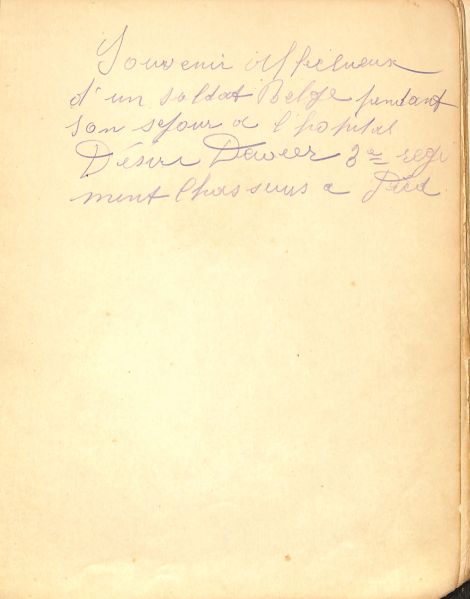 Souvenir affectueux
d'un soldat Belge pendant
son sejour a l'hopital
Désiré 3me regi
ment Chasseurs a Pied